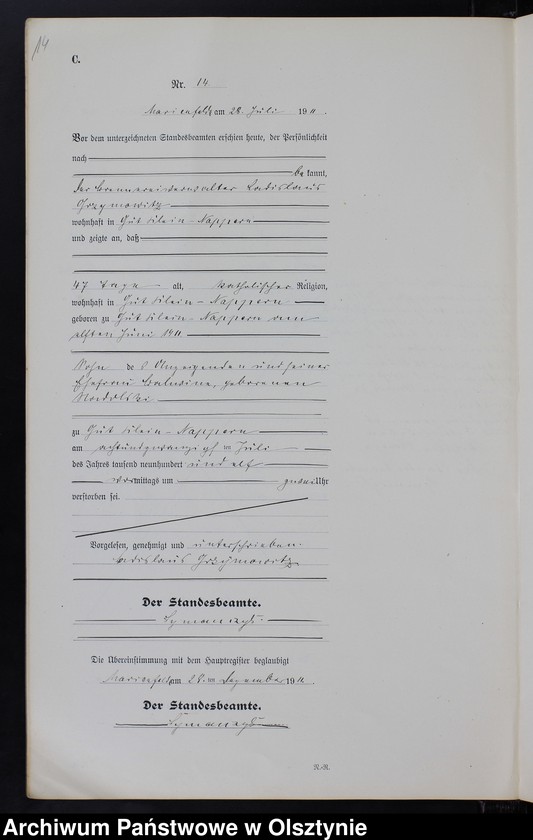 14
C.
Nr. 14
Marienfelde am 28. Juli 1911.
Vor dem unterzeichneten Standesbeamten erschien heute, der Persönlichkeit
nach
be kannt,
der Brennereiverwalter Ladislaus
Grzymowitz
wohnhaft in Gut Klein-Nappern
und zeigte an, daß
47 Tage alt, katholischer Religion,
wohnhaft in Gut Klein-Nappern
geboren zu Gut Klein-Nappern am
elften Juni 1911
Sohn des Anzeigenden und seiner
Ehefrau geborenen
zu Gut Klein-Nappern
am achtundzwanzigsten Juli
des Jahres tausend neunhundert und elf
vormittags um zwei Uhr
verstorben sei.
Vorgelesen, genehmigt und unterschrieben
Ladislaus Grzymowitz
Der Standesbeamte.
Die Übereinstimmung mit dem Hauptregister beglaubigt
Marienfelde am 28. Dezember 1911
Der Standesbeamte.
Archiwum Państwowe w Olsztynie